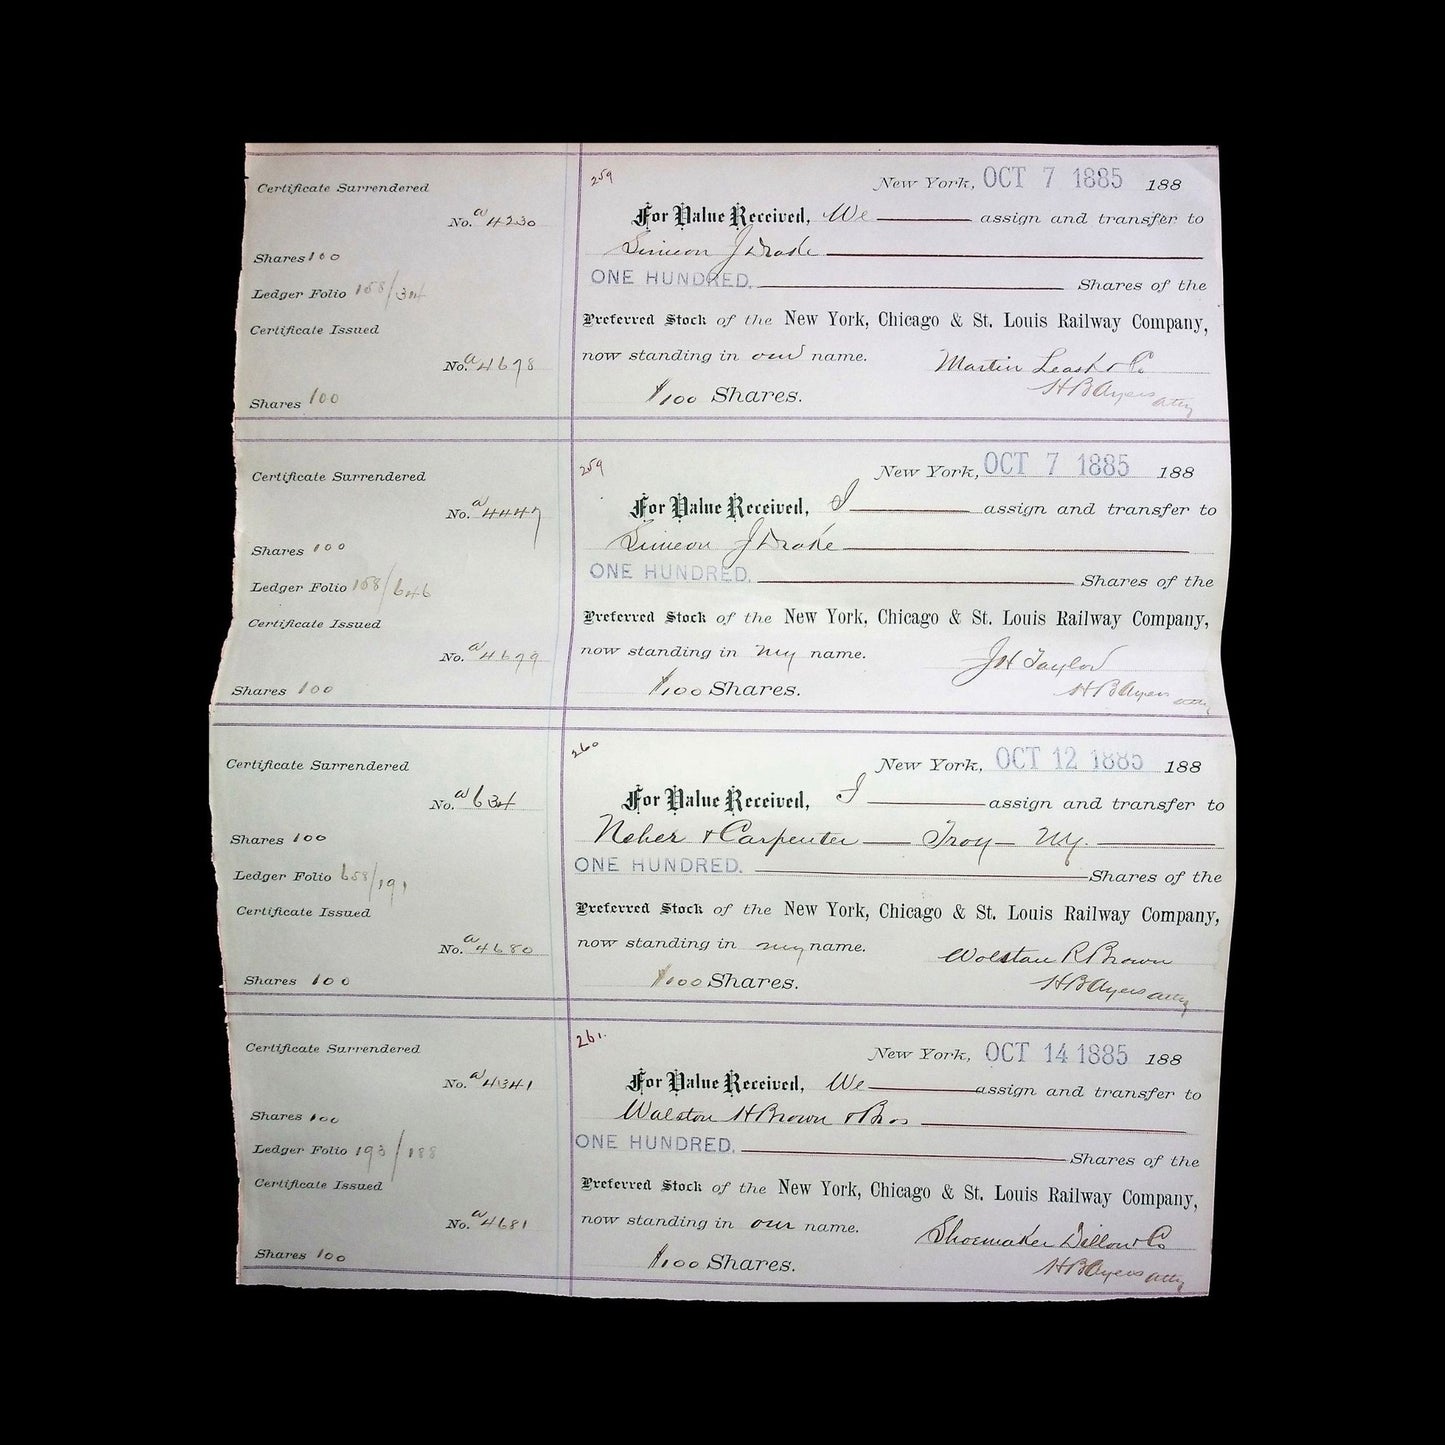 Certificate Surrendered
No. a 4230
Shares 100
Ledger Folio 158/34
Certificate Issued
No. a 4678
Shares 100
259
New York, OCT 7 1885 188
For Value Received, We assign and transfer to
Simeon J Drake
ONE HUNDRED. Shares of the
Preferred Stock of the New York, Chicago & St. Louis Railway Company,
now standing in our name.
Martin Leask & Co
$100 Shares.
H B Ayers atty
Certificate Surrendered
No. a 4447
Shares 100
Ledger Folio 158/646
Certificate Issued
No. a 4679
Shares 100
259
New York, OCT 7 1885 188
For Value Received, I assign and transfer to
Simeon J Drake
ONE HUNDRED. Shares of the
Preferred Stock of the New York, Chicago & St. Louis Railway Company,
now standing in my name.
J H Taylor
$100 Shares.
H B Ayers atty
Certificate Surrendered
No. a 634
Shares 100
Ledger Folio 658/191
Certificate Issued
No. a 4680
Shares 100
260
New York, OCT 12 1885 188
For Value Received, I assign and transfer to
Neher & Carpenter Troy NY.
ONE HUNDRED. Shares of the
Preferred Stock of the New York, Chicago & St. Louis Railway Company,
now standing in my name.
Wolston R Brown
$100 Shares.
H B Ayers atty
Certificate Surrendered
No. a 4341
Shares 100
Ledger Folio 193/188
Certificate Issued
No. a 4681
Shares 100
261.
New York, OCT 14 1885 188
For Value Received, We assign and transfer to
Walston H Brown & Bros
ONE HUNDRED. Shares of the
Preferred Stock of the New York, Chicago & St. Louis Railway Company,
now standing in our name.
Shoemaker Dillow & Co
$100 Shares.
H B Ayers atty